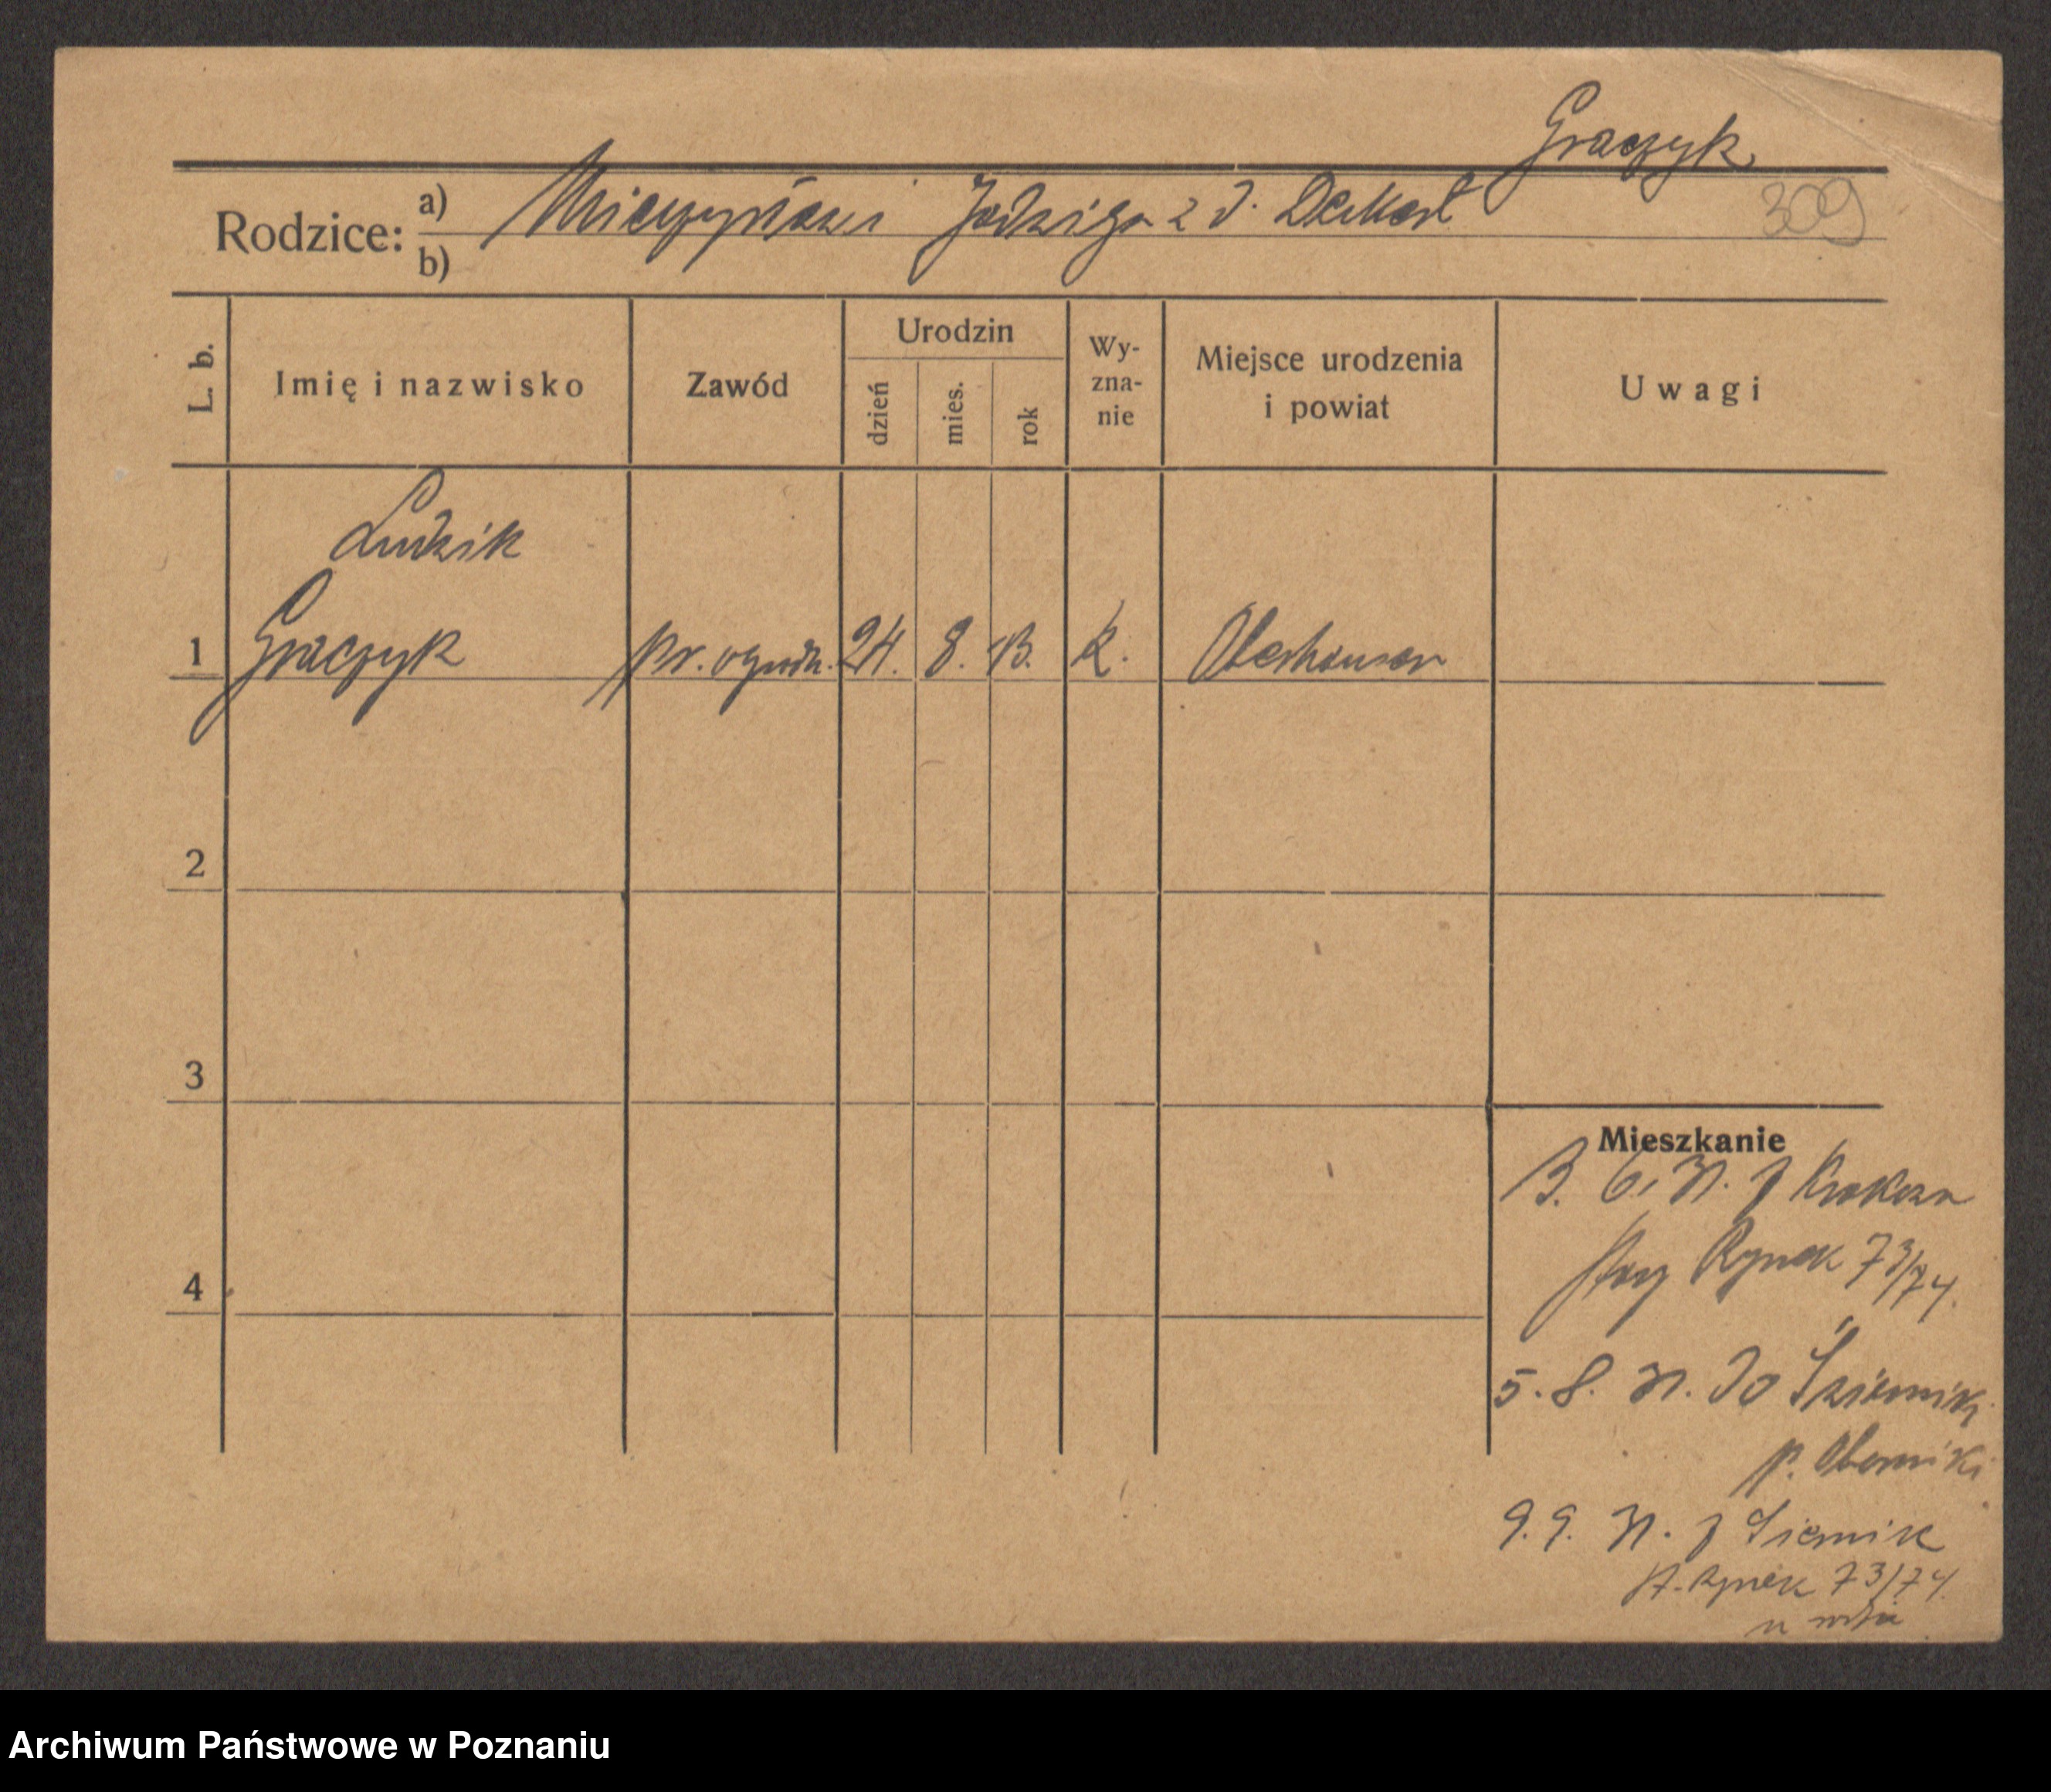 Graczyk
309
Rodzice: a) Mieczysław i Jadwiga z d. Deckert
b)
L. b. Imię i nazwisko Zawód Urodzin dzień mies. rok Wy-zna-nie Miejsce urodzenia i powiat Uwagi
Ludzik
1 Graczyk pr. ogrodn. 24. 8. 13. k. Oberhausen
2
3
Mieszkanie
3. 6. 31. z
Stary Rynek 73/74.
4
5. 8. 31. do
p. Oborniki
9. 9. 31. z
St. Rynek 73/74
u
Archiwum Państwowe w Poznaniu